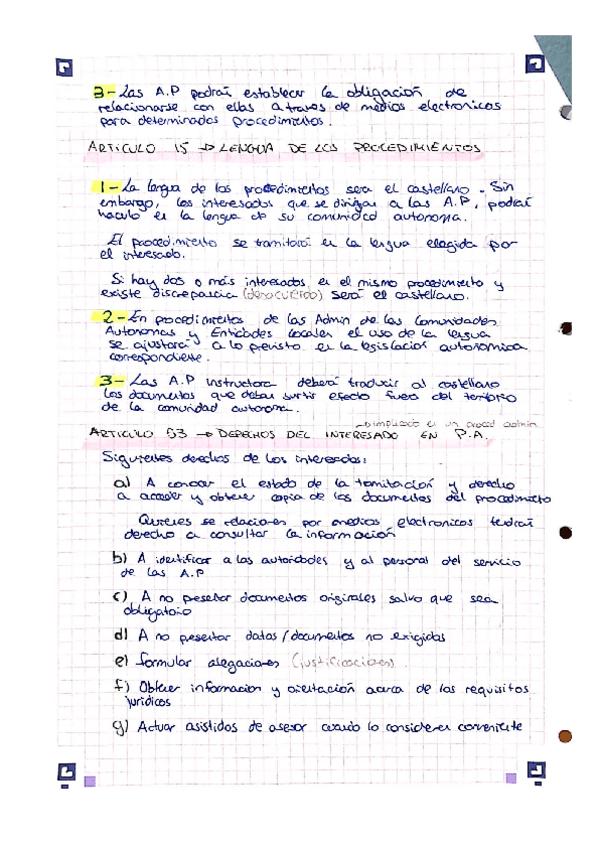 3- Las A.P podrán establecer la obligación de
relacionarse con ellas a traves de medios electronicos
para determinados procedimientos.
ARTICULO 15 → LENGUA DE LOS PROCEDIMIENTOS
1- La lengua de los procedimientos será el castellano. Sin
embargo, los interesados que se dirigan a las A.P, podrán
hacerlo en la lengua de su comunidad autonoma.
El procedimiento se tramitará en la lengua elegida por
el interesado.
Si hay dos o más interesados en el mismo procedimiento y
existe discrepancia (desacuerdo) será el castellano.
2- En procedimientos de las Admin de las Comunidades
Autonomas y Entidades Locales el uso de la lengua
se ajustará a lo previsto en la legislación autonomica
correspondiente.
3- Las A.P instructora deberá traducir al castellano
los documentos que deban surtir efecto fuera del territorio
de la comunidad autonoma.
→ implicado en un proced admin.
ARTICULO 53 → DERECHOS DEL INTERESADO EN P.A.
Siguientes derechos de los interesados:
a) A conocer el estado de la tramitación y derecho
a acceder y obtener copia de los documentos del procedimiento
Quienes se relacionen por medios electronicos tendrán
derecho a consultar la información
b) A identificar a las autoridades y al personal del servicio
de las A.P
c) A no presentar documentos originales salvo que sea
obligatorio
d) A no presentar datos/documentos no exigidos
e) formular alegaciones (justificaciones).
f) Obtener informacion y orientación acerca de los requisitos
juridicos
g) Actuar asistidos de asesor cuando lo consideren conveniente